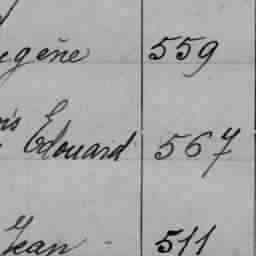 ugène 559
is Edouard 567
Jean 511